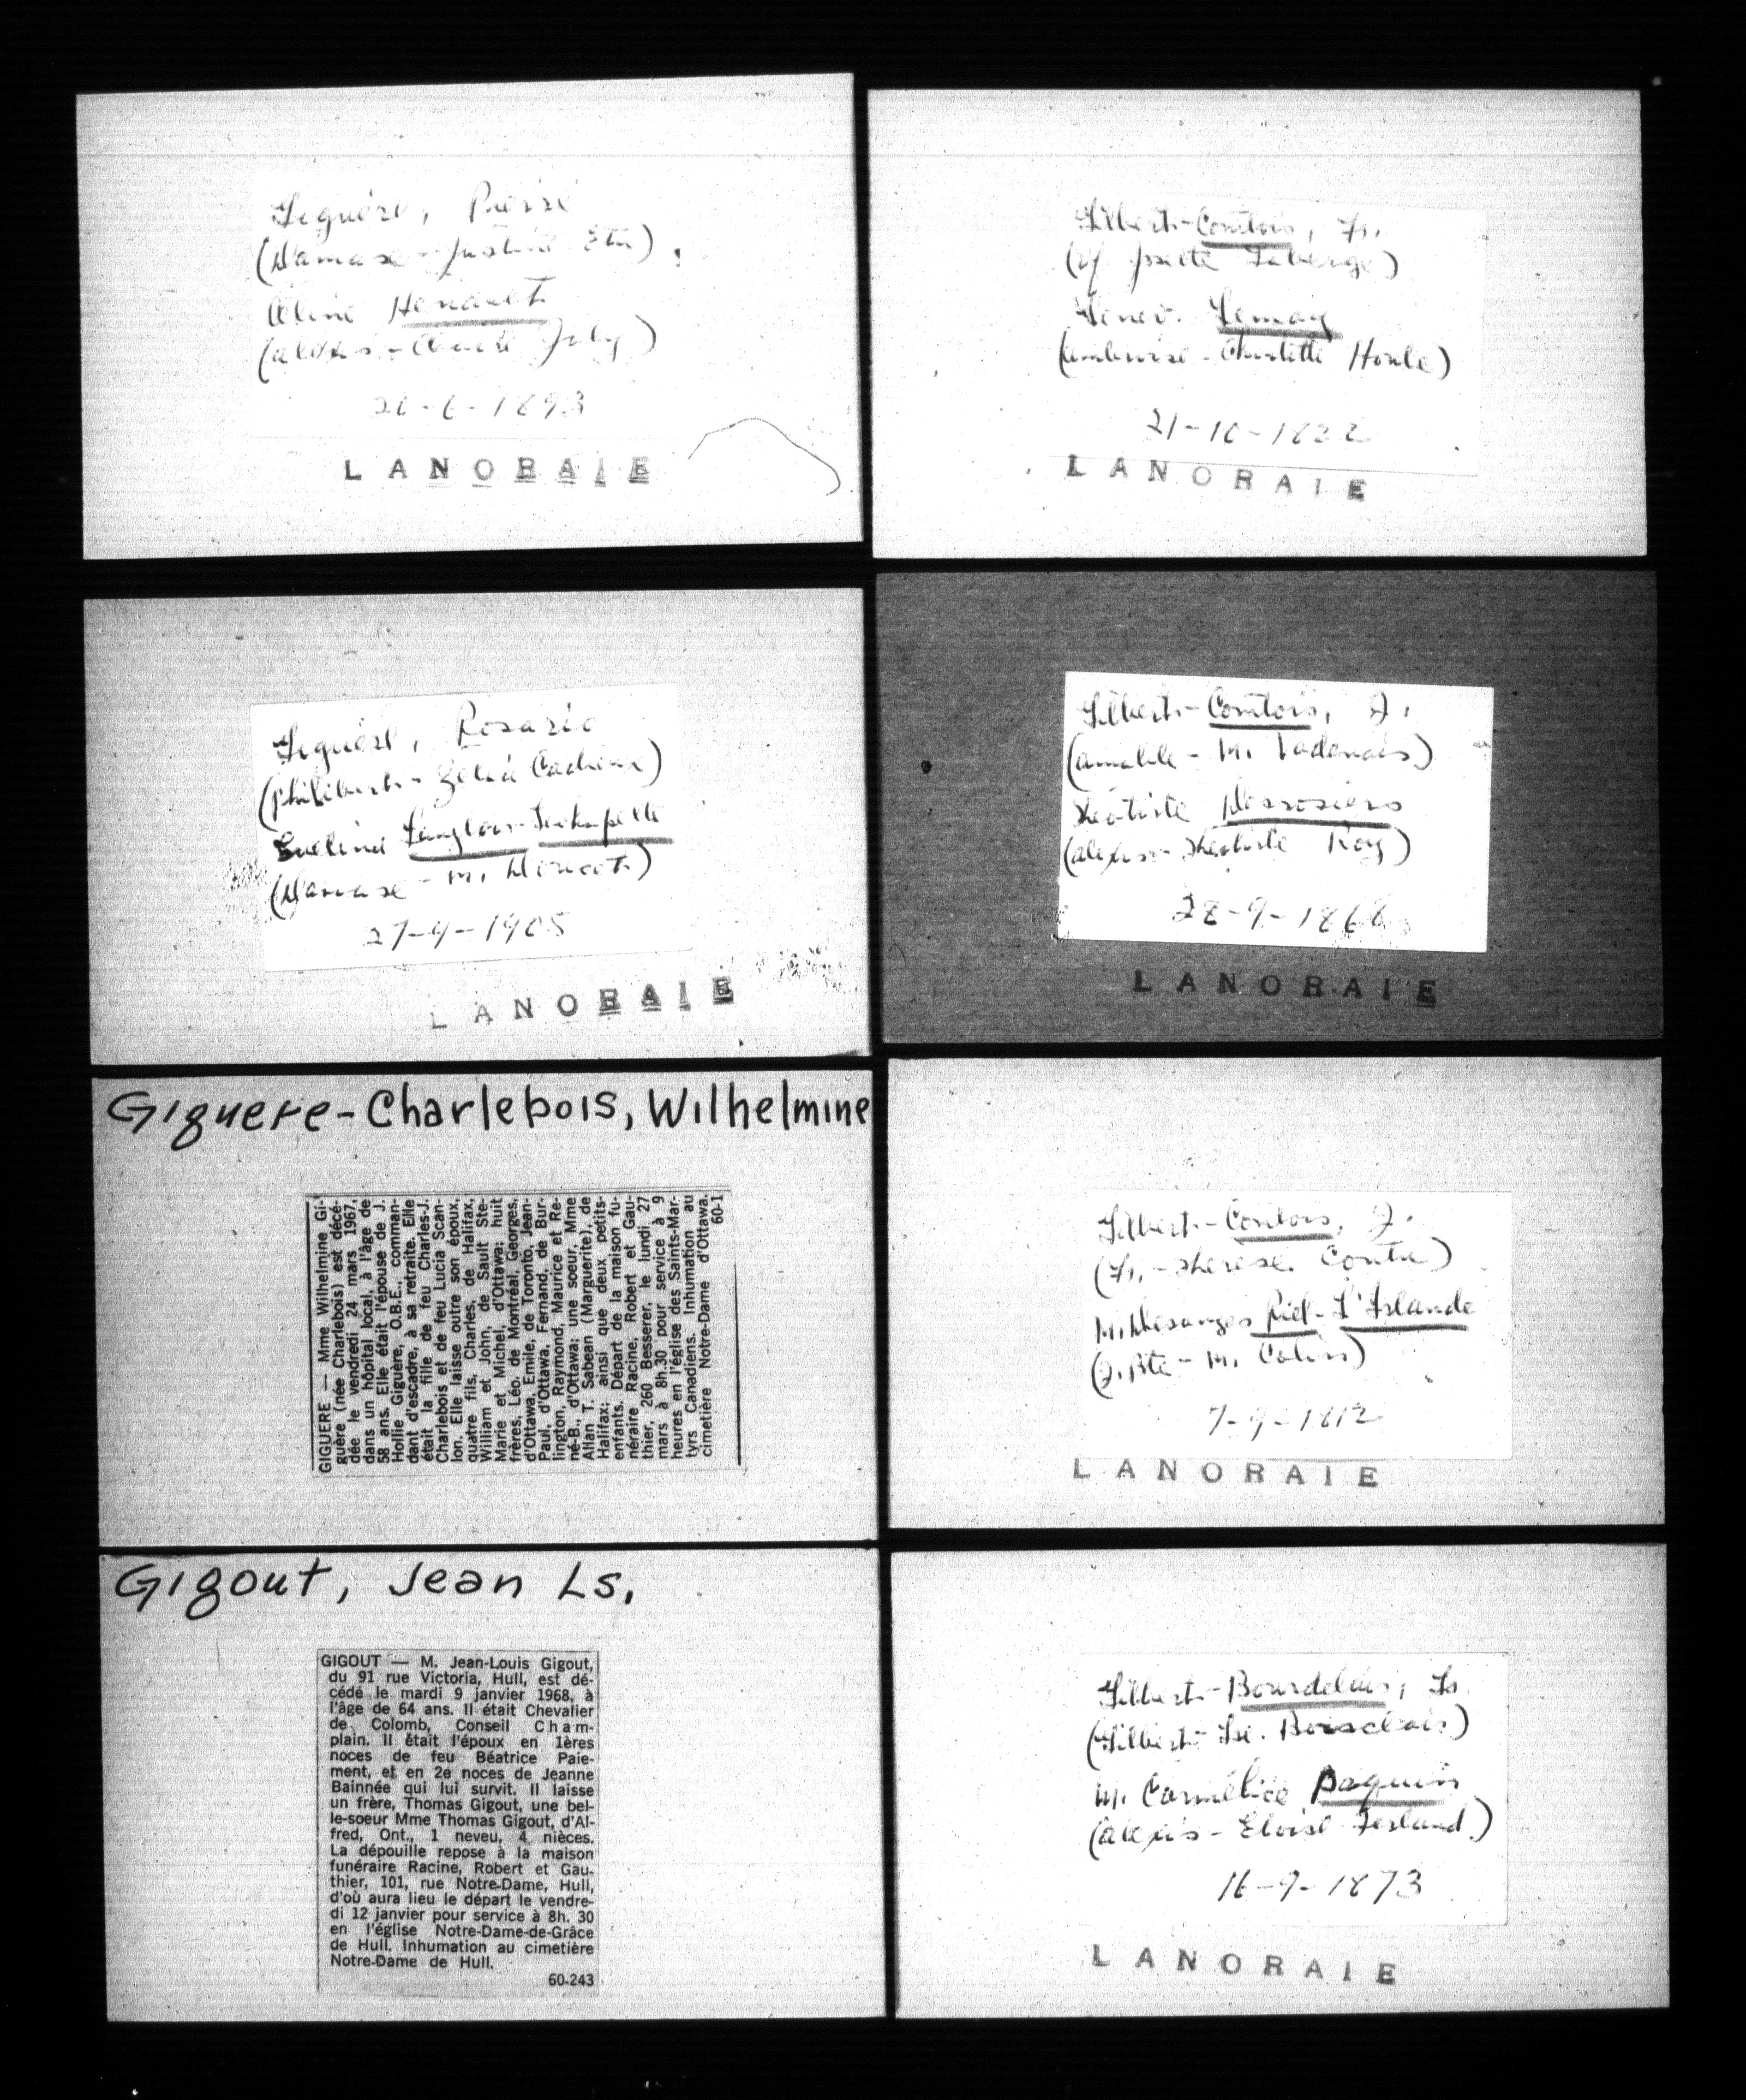 Giguère, Pierre
(Damase - Justine Étu)
Aline Henault
(Alexis - Joly)
20-6-1893
LANORAIE
Giguère, Rosario
(Philibert - Zélia Cadieux)
Evelina Langlois-Lachapelle
(Damase - M. Doucet)
27-9-1905
LANORAIE
Giguere-Charlebois, Wilhelmine
GIGUERE — Mme Wilhelmine Gi-
guère (née Charlebois) est décé-
dée le vendredi 24 mars 1967,
dans un hôpital local, à l'âge de
58 ans. Elle était l'épouse de J.
Hollie Giguère, O.B.E., comman-
dant d'escadre, à sa retraite. Elle
était la fille de feu Charles-J.
Charlebois et de feu Lucia Scan-
lon. Elle laisse outre son époux,
quatre fils, Charles, de Halifax,
William et John, de Sault Ste-
Marie et Michel, d'Ottawa; huit
frères, Léo, de Montréal, Georges,
d'Ottawa, Emile, de Toronto, Jean-
Paul, d'Ottawa, Fernand, de Bur-
lington, Raymond, Maurice et Re-
né-B., d'Ottawa; une soeur, Mme
Allan T. Sabean (Marguerite), de
Halifax; ainsi que deux petits-
enfants. Départ de la maison fu-
néraire Racine, Robert et Gau-
thier, 260 Besserer, le lundi 27
mars à 8h.30 pour service à 9
heures en l'église des Saints-Mar-
tyrs Canadiens. Inhumation au
cimetière Notre-Dame d'Ottawa.
60-1
Gigout, Jean Ls.
GIGOUT — M. Jean-Louis Gigout,
du 91 rue Victoria, Hull, est dé-
cédé le mardi 9 janvier 1968, à
l'âge de 64 ans. Il était Chevalier
de Colomb, Conseil Cham-
plain. Il était l'époux en 1ères
noces de feu Béatrice Paie-
ment, et en 2e noces de Jeanne
Bainnée qui lui survit. Il laisse
un frère, Thomas Gigout, une bel-
le-soeur Mme Thomas Gigout, d'Al-
fred, Ont., 1 neveu, 4 nièces.
La dépouille repose à la maison
funéraire Racine, Robert et Gau-
thier, 101, rue Notre-Dame, Hull,
d'où aura lieu le départ le vendre-
di 12 janvier pour service à 8h. 30
en l'église Notre-Dame-de-Grâce
de Hull. Inhumation au cimetière
Notre-Dame de Hull.
60-243
Gilbert-Comtois, Fs.
(vf Josette Laberge)
Genev. Lemay
(Ambroise - Charlotte Houle)
21-10-1822
LANORAIE
Gilbert-Comtois, J.
(Amable - M. Vadenais)
Théotiste Desrosiers
(Alexis - Théotiste Roy)
28-9-1868
LANORAIE
Gilbert-Comtois, J.
(Fs. - Thérèse Coutu)
M. Desanges Riel-L'Islande
(J. Bte - M. Colin)
7-9-1812
LANORAIE
Gilbert-Bourdelais, Fs.
(Gilbert - Boisclair)
M. Cornélice Paquin
(Alexis - Eloise Ferland)
16-9-1873
LANORAIE